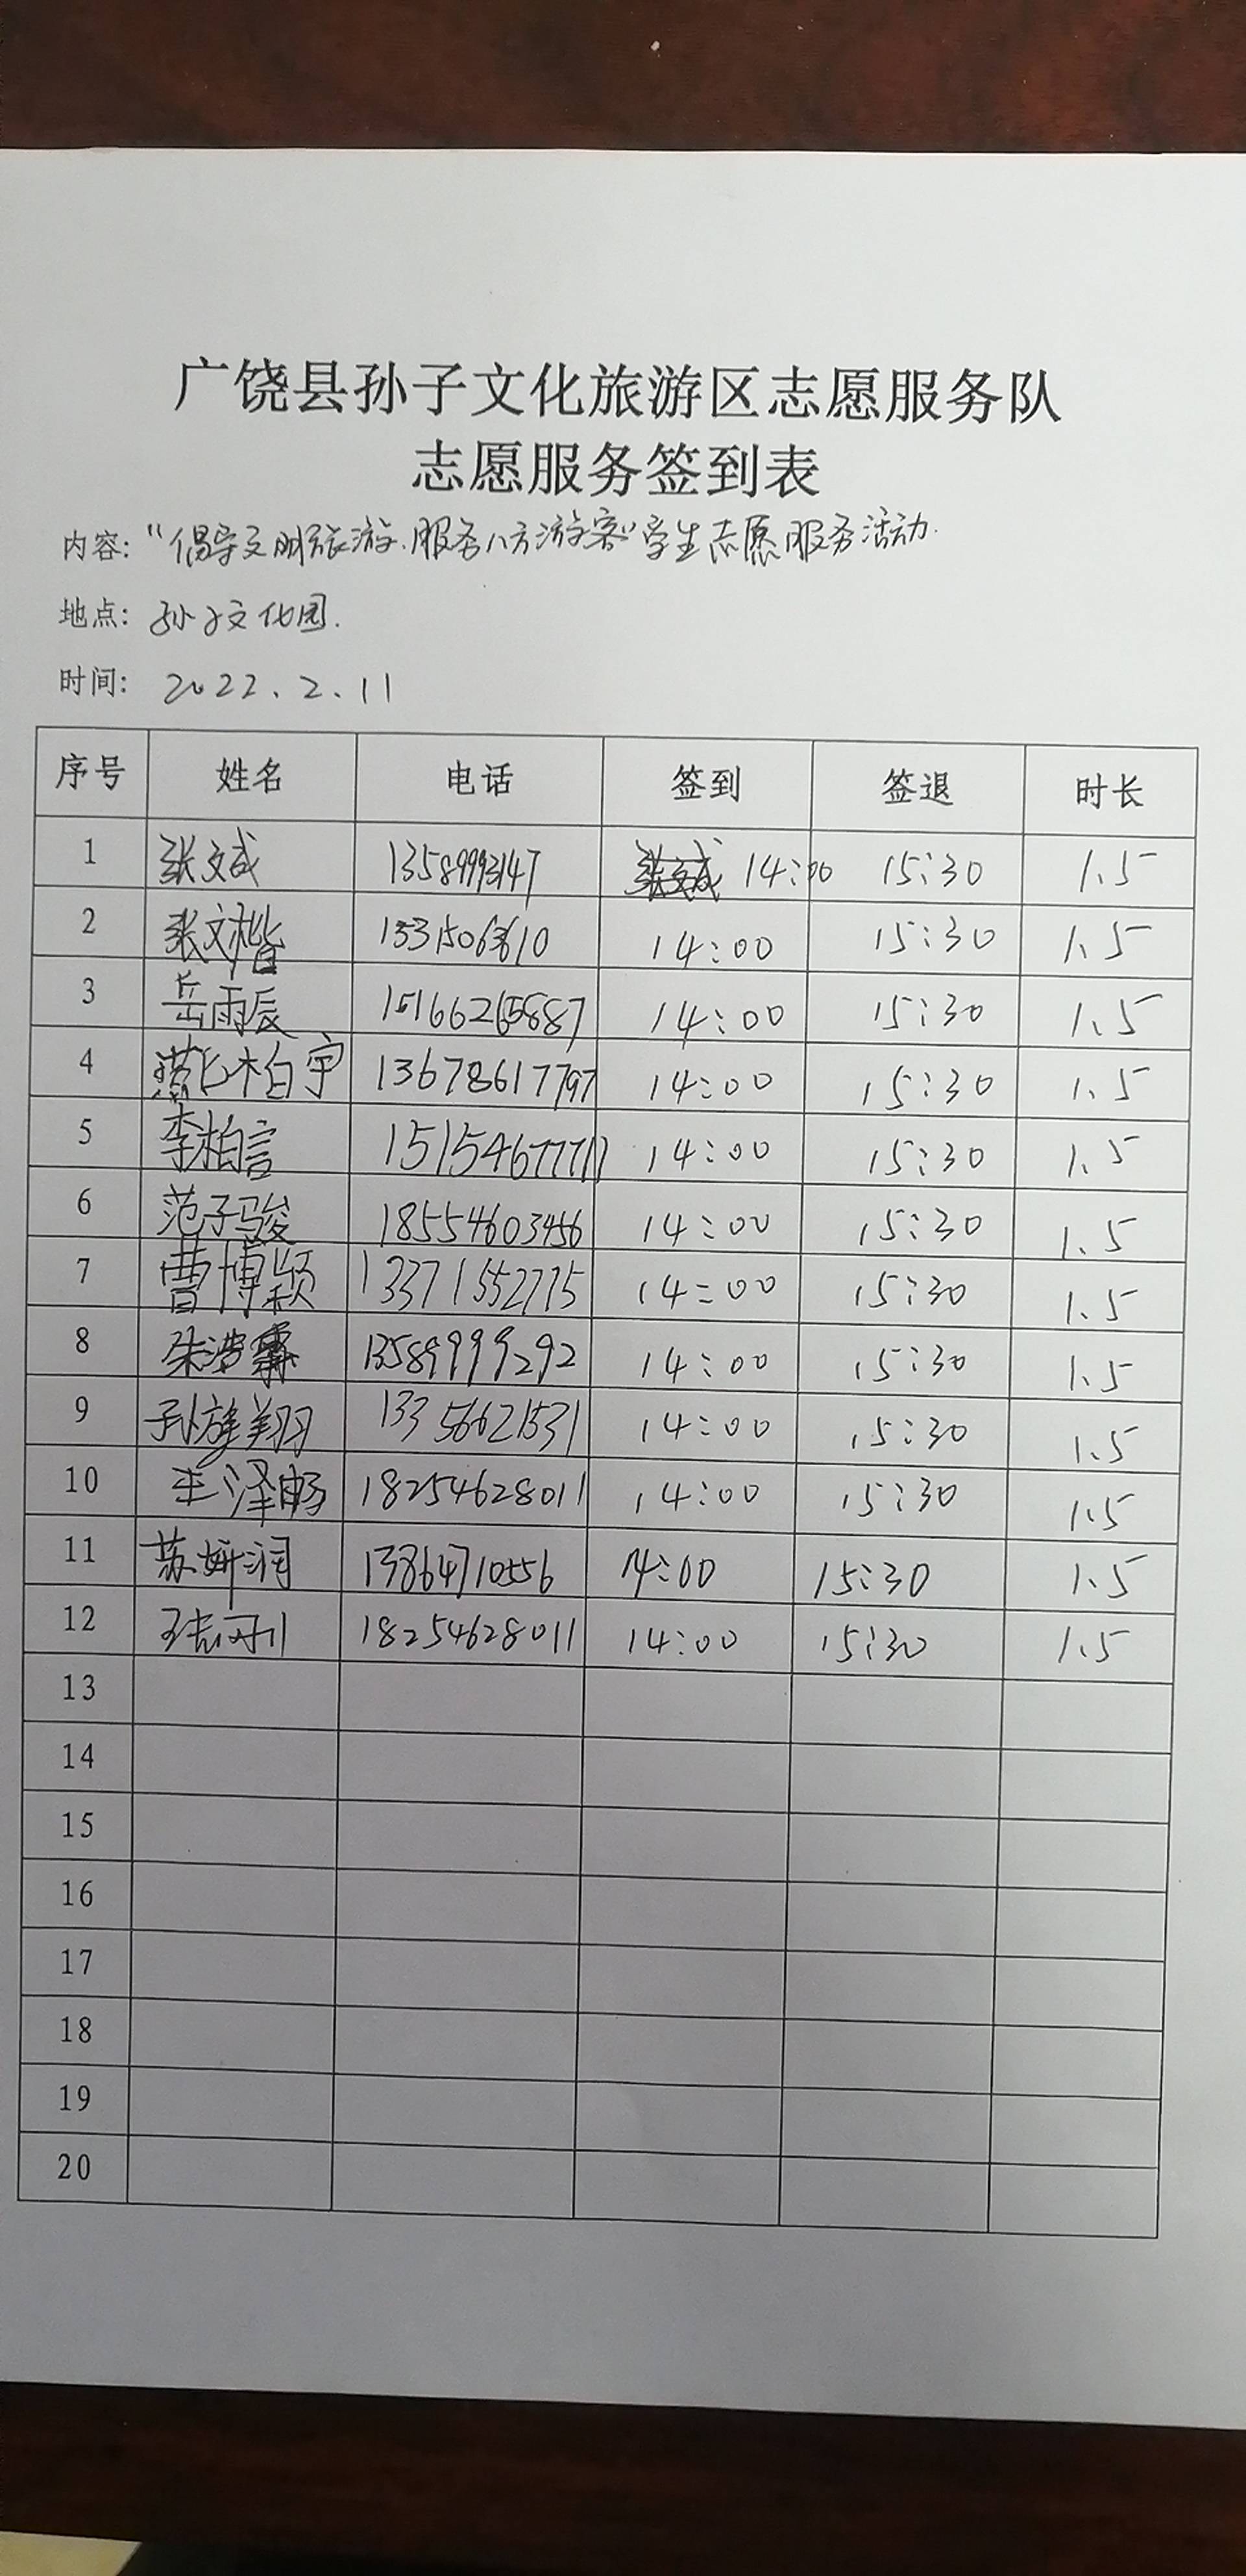 广饶县孙子文化旅游区志愿服务队
志愿服务签到表
内容：“倡导文明旅游、服务八方游客”学生志愿服务活动.
地点：孙子文化园.
时间：2022.2.11
序号 姓名 电话 签到 签退 时长
1 张文斌 13589993147 14:00 15:30 1.5
2 张文楷 14:00 15:30 1.5
3 岳雨辰 15166265887 14:00 15:30 1.5
4 柏宇 13678617797 14:00 15:30 1.5
5 李柏言 14:00 15:30 1.5
6 范子骏 18554603456 14:00 15:30 1.5
7 曹博颖 13371552775 14:00 15:30 1.5
8 朱浩霖 13589999292 14:00 15:30 1.5
9 孙 翔 13356621531 14:00 15:30 1.5
10 王泽畅 18254628011 14:00 15:30 1.5
11 苏妍润 13864710556 14:00 15:30 1.5
12 18254628011 14:00 15:30 1.5
13
14
15
16
17
18
19
20